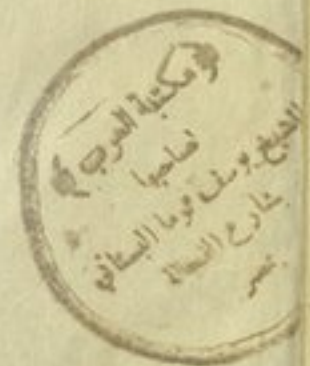 ﴿مكتبة العرب﴾
لصاحبها
الشيخ يوسف توما البستاني
شارع الفجالة
بمصر